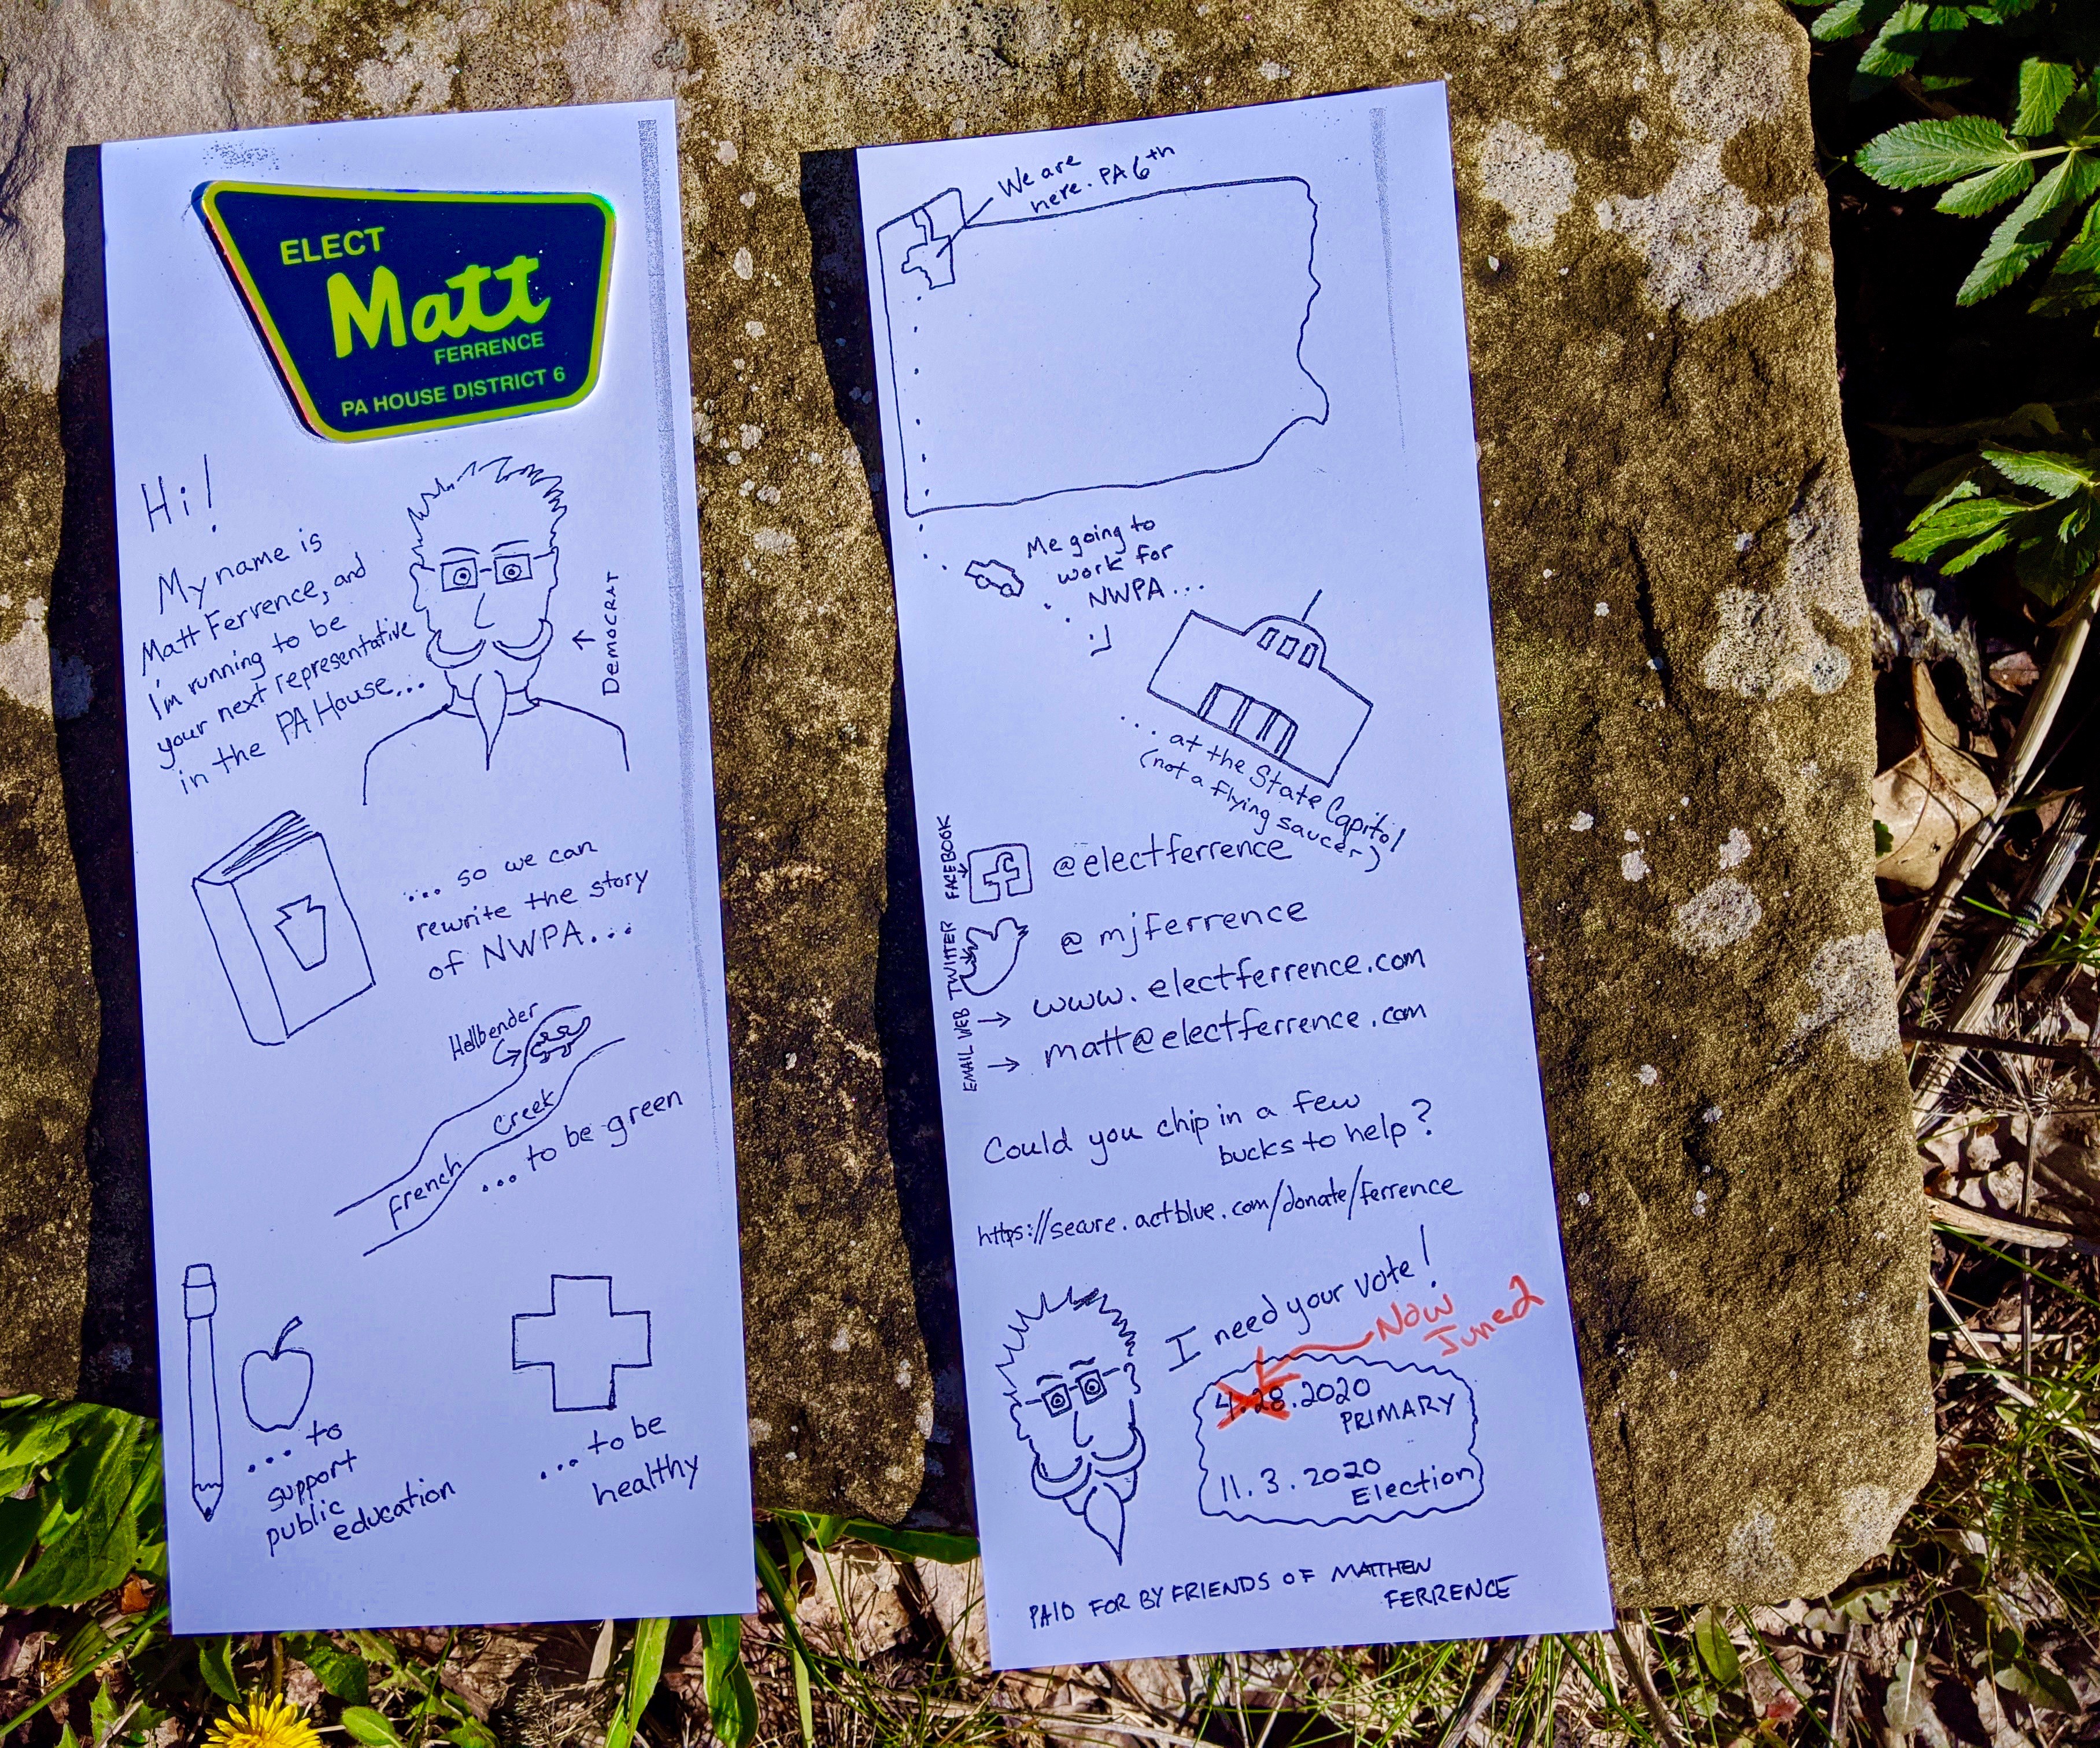 ELECT
Matt
FERRENCE
PA HOUSE DISTRICT 6
Hi!
My name is
Matt Ferrence, and
I'm running to be
your next representative
in the PA House...
DEMOCRAT
.... so we can
rewrite the story
of NWPA...
Hellbender
French Creek
... to be green
... to
support
public
education
... to be
healthy
We are
here. PA 6th
Me going to
work for
NWPA...
... at the State Capitol
(not a flying saucer)
FACEBOOK
@electferrence
TWITTER
@mjferrence
WEB
www.electferrence.com
EMAIL
matt@electferrence.com
Could you chip in a few
bucks to help?
https://secure.actblue.com/donate/ferrence
I need your vote!
Now
June 2
4.28.2020
PRIMARY
11.3.2020
Election
PAID FOR BY FRIENDS OF MATTHEW
FERRENCE